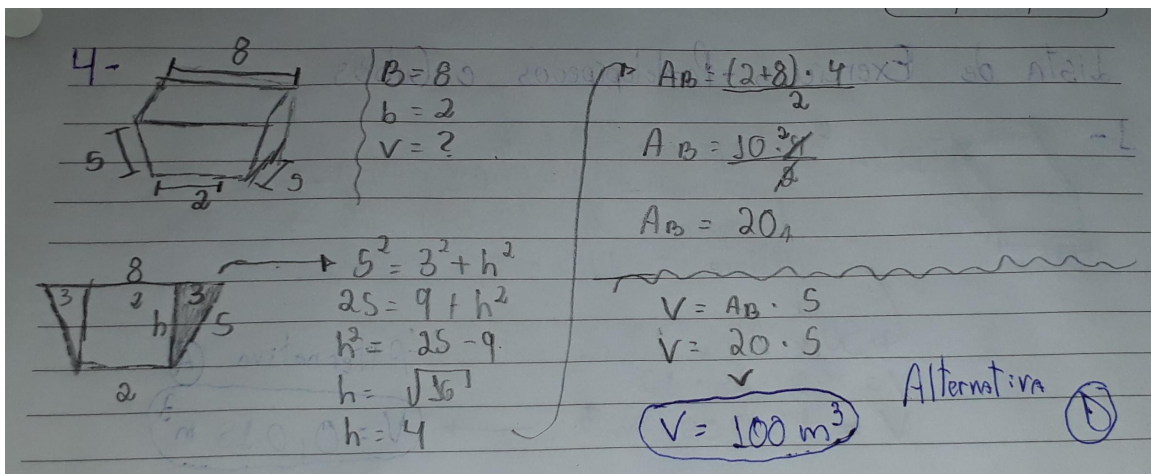 4-
8
5
2
5
B = 8
b = 2
V = ?
8
3 2 3
h 5
2
5² = 3² + h²
25 = 9 + h²
h² = 25 - 9
h = √16
h = 4
AB = (2+8) · 4
2
AB = 10 · 4 2
2
AB = 20
V = AB · 5
V = 20 · 5
V = 100 m³
Alternativa
D